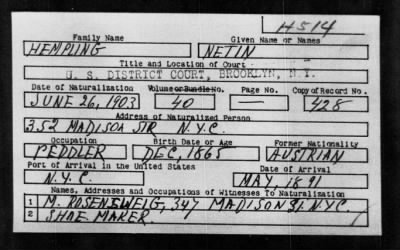 H514
Family Name Given Name or Names
HEMPLING NETIN
Title and Location of Court
U. S. DISTRICT COURT, BROOKLYN, N.Y.
Date of Naturalization Volume or Bundle No. Page No. Copy of Record No.
JUNE 26, 1903 40 — 428
Address of Naturalized Person
352 MADISOA STR N.Y.C.
Occupation Birth Date or Age Former Nationality
PEDDLER DEC, 1865 AUSTRIAN
Port of Arrival in the United States Date of Arrival
N.Y.C. MAY 1891
Names, Addresses and Occupations of Witnesses To Naturalization
1 M. ROSENEWEIG, 347 MADISON St. N.Y.C.
2 SHOE MAKER.